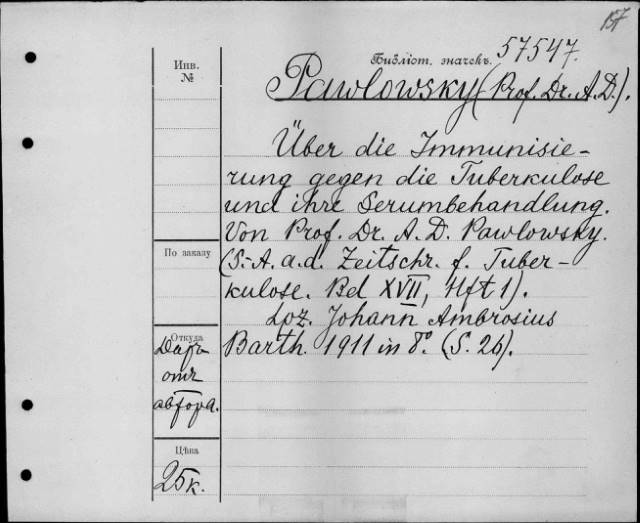 157
Библіот. значекъ. 57547.
Инв.
№
Pawlowsky (Prof. Dr. A. D.).
Über die Immunisie-
rung gegen die Tuberkulose
und ihre Serumbehandlung.
Von Prof. Dr. A. D. Pawlowsky.
По заказу
(S.-A. a. d. Zeitschr. f. Tuber-
kulose. Bd XVII, Hft 1).
Lpz. Johann Ambrosius
Barth. 1911 in 8°. (S. 26).
Откуда
Даръ
отъ
автора.
Цѣна
25к.